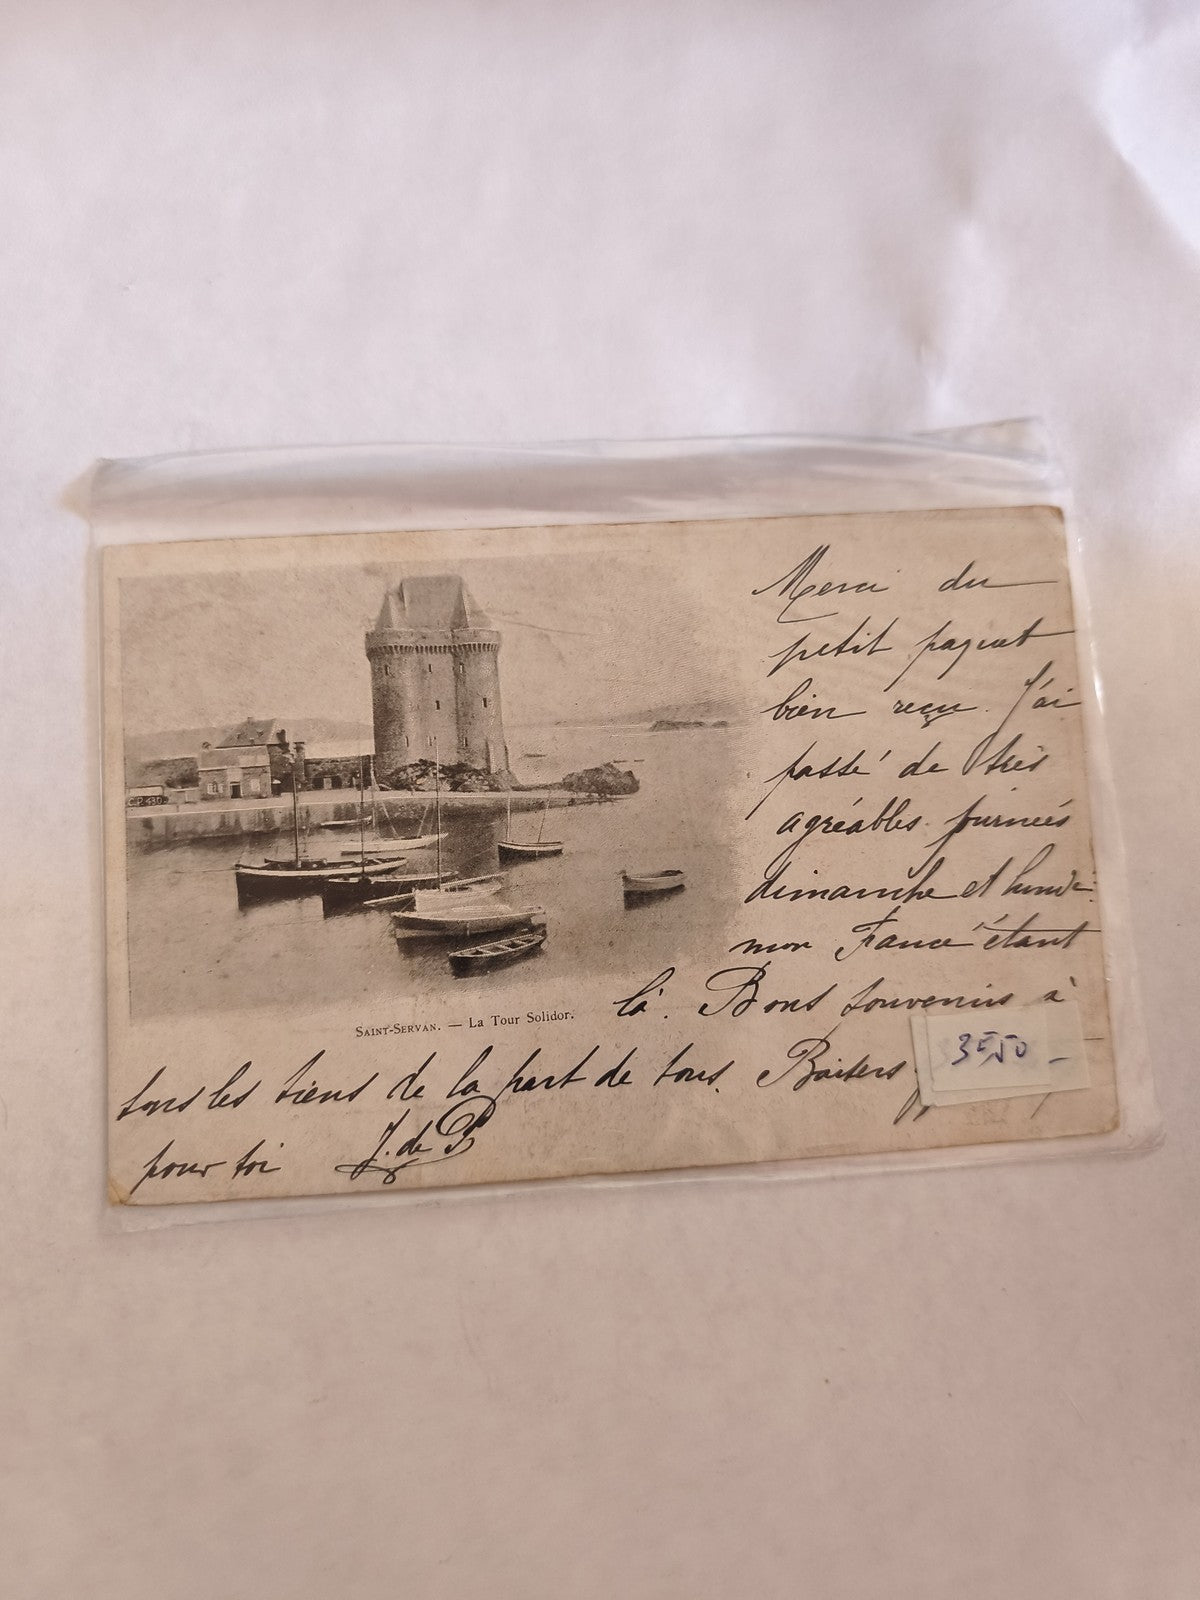 Merci du
petit paquet
bien reçu. J'ai
passé de très
agréables journées
dimanche et lundi
mon Fiancé étant
là. Bons souvenirs à
tous les tiens de la part de tous. Baisers
pour toi J. de P
SAINT-SERVAN. — La Tour Solidor.
3F,50 -